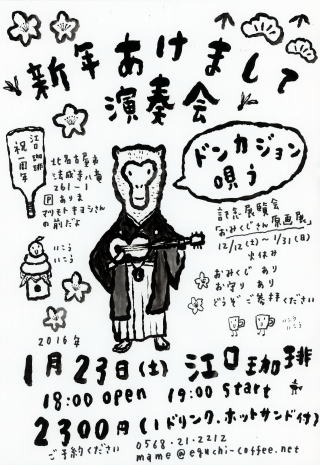 新年あけまして
演奏会
江口珈琲
祝一周年
北名古屋市
法成寺八竜
261-1
Ⓟあります
マリモトキヨシさん
の前だよ
ドンカジョン
唄う
記念展覧会
「おみくじさん原画展」
12/12(土)〜1/31(日)
火休み
おみくじ あり
お守り あり
どうぞご参拝ください
いこう
いこう
いこう
いこう
2016年
1月23日(土) 江口珈琲
18:00 open 19:00 start
2300円(1ドリンク、ホットサンド付)
ご予約ください
0568-21-2212
mame@eguchi-coffee.net